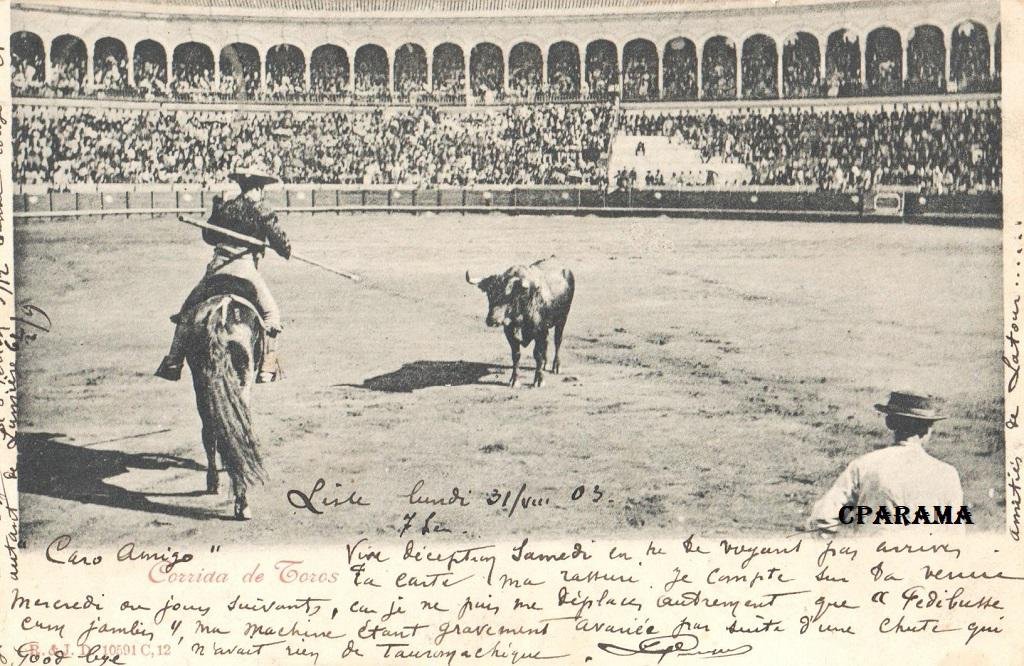 Liste lundi 31/VIII 03.
7 h
CPARAMA
"Caro Amigo" Vive déception Samedi en ne te voyant pas arriver.
Corrida de Toros
Ta carte m'a rassuré. Je compte sur ta venue
Mercredi ou jours suivants, car je ne puis me déplacer autrement que "Pedibusse
cum jambis", ma machine étant gravement avariée par suite d'une chute qui
R. & J. D. 10591 C, 12
Good bye n'avait rien de Tauromachique.
amitiés de Latour.....
autant de Lumière
2/9